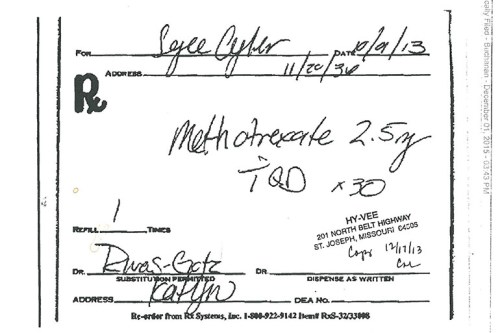 FOR DATE 10/9/13
ADDRESS 11/20/36
Rx
Methotrexate 2.5mg
T QD x30
REFILL 1 TIMES
HY-VEE
201 NORTH BELT HIGHWAY
ST. JOSEPH, MISSOURI 64506
Copy 12/17/13
DR. DR.
SUBSTITUTION PERMITTED DISPENSE AS WRITTEN
ADDRESS Katlyn DEA NO.
Re-order from Rx Systems, Inc. 1-800-922-9142 Item# RxS-32/33008
cally Filed - Buchanan - December 01, 2015 - 03:43 PM